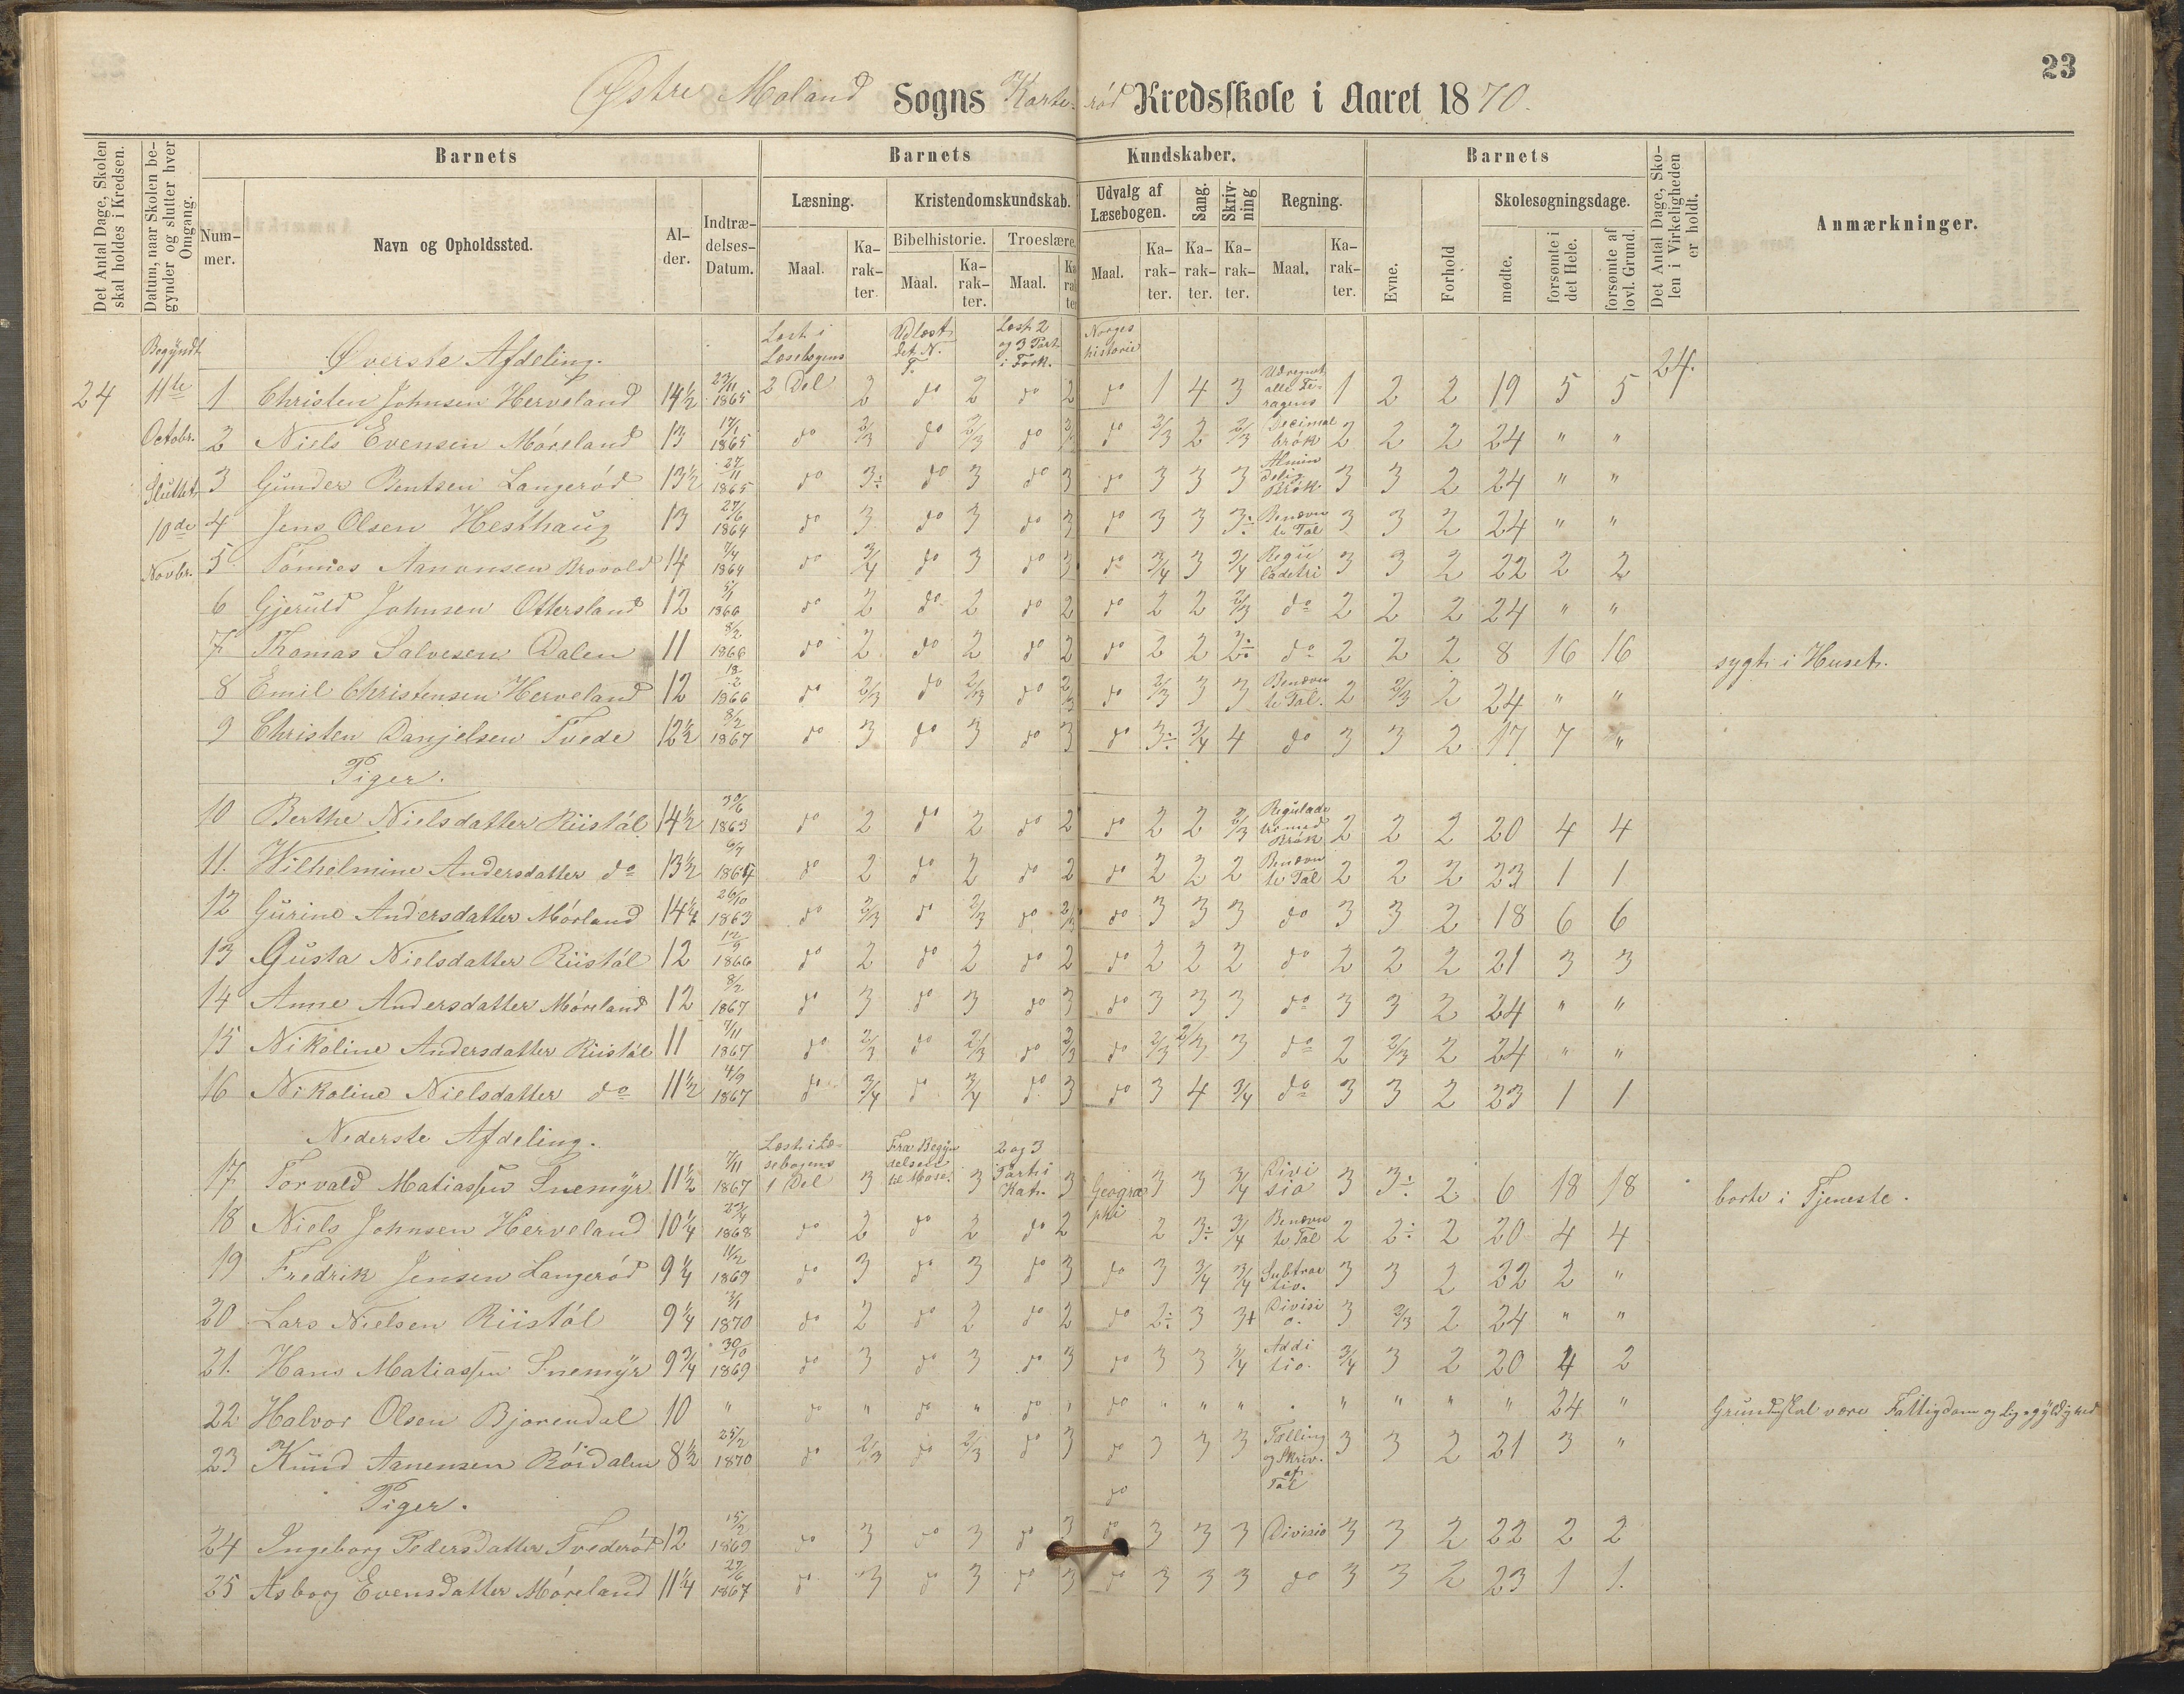 23
Østre Moland Sogns Karterød Kredsskole i Aaret 1870.
Det Antal Dage, Skolen skal holdes i Kredsen.
Datum, naar Skolen begynder og slutter hver Omgang.
Barnets
Barnets Kundskaber.
Barnets
Det Antal Dage, Skolen i Virkeligheden er holdt.
Anmærkninger.
Nummer.
Navn og Opholdssted.
Alder.
Indtrædelses-Datum.
Læsning.
Kristendomskundskab.
Udvalg af Læsebogen.
Sang.
Skrivning
Regning.
Evne.
Forhold
Skolesøgningsdage.
Bibelhistorie.
Troeslære.
Maal.
Karakter.
Maal.
Karakter.
Maal.
Karakter
Maal.
Karakter.
Karakter.
Karakter.
Maal.
Karakter.
mødte.
forsømte i det Hele.
forsømte af lovl. Grund.
Begyndt 11te Octobr. Sluttet 10de Novbr.
Øverste Afdeling.
24 1 Christen Johnsen Herveland 14½ 23/11 1865 Læst i Læsebogens 2 Del 2 Udlæst det N. T. do 2 Læst 2 og 3 Part i Fork. do 2 Norges historie do 1 4 3 Udregnet alle 1 2 2 19 5 5 24.
2 Niels Evensen Møreland 13 17/1 1865 do 2/3 do 2/3 do 2/3 do 2/3 2 2/3 Decimal brøk 2 2 2 24 " "
3 Gunder Bentsen Langerød 13½ 27/11 1865 do 3÷ do 3 do 3 do 3 3 3 Almindelig Brøk 3 3 2 24 " "
4 Jens Olsen Hesthaug 13 27/6 1864 do 3 do 3 do 3 do 3 3 3÷ Benævnte Tal 3 3 2 24 " "
5 Tønnes Aanonsen Brovold 14 7/4 1864 do 3/4 do 3 do 3 do 3/4 3 3/4 Reguladetri 3 3 2 22 2 2
6 Gjeruld Johnsen Ottersland 12 3/1 1866 do 2 do 2 do 2 do 2 2 2/3 do 2 2 2 24 " "
7 Thomas Salvesen Dalen 11 8/2 1866 do 2 do 2 do 2 do 2 2 2÷ do 2 2 2 8 16 16 sygt i Huset.
8 Emil Christensen Herveland 12 18/2 1866 do 2/3 do 2/3 do 2/3 do 2/3 3 3 Benævnte Tal. 2 2/3 2 24 " "
9 Christen Danjelsen Tvede 12½ 8/2 1867 do 3 do 3 do 3 do 3÷ 3/4 4 do 3 3 2 17 7 "
Piger.
10 Berthe Nielsdatter Riistøl 14½ 30/6 1863 do 2 do 2 do 2 do 2 2 2/3 Reguladetri med Brøk 2 2 2 20 4 4
11. Wilhelmine Andersdatter do 13½ 1864 do 2 do 2 do 2 do 2 2 2 Benævnte Tal 2 2 2 23 1 1
12 Gurine Andersdatter Mørland 14¼ 26/10 1863 do 2/3 do 2/3 do 2/3 do 3 3 3 do 3 3 2 18 6 6
13 Gusta Nielsdatter Riistøl 12 12/9 1866 do 2 do 2 do 2 do 2 2 2 do 2 2 2 21 3 3
14 Anne Andersdatter Møreland 12 8/2 1867 do 3 do 3 do 3 do 3 3 3 do 3 3 2 24 " "
15 Nikoline Andersdatter Riistøl 11 7/11 1867 do 2/3 do 2/3 do 2/3 do 2/3 2/3 3 do 2 2/3 2 24 " "
16 Nikoline Nielsdatter do 11½ 4/9 1867 do 3/4 do 3/4 do 3 do 3 4 3/4 do 3 3 2 23 1 1
Nederste Afdeling.
17 Torvald Matiassen Snemyr 11½ 7/11 1867 Læst i Læsebogens 1 Del 3 Fra Begyndelsen til Mose. 3 2 og 3 Part i Kat. 3 Geographi 3 3 3/4 Divisio 3 3÷ 2 6 18 18 borte i Tjeneste.
18 Niels Johnsen Herveland 10¼ 23/4 1868 do 2 do 2 do 2 2 3÷ 3/4 Benævnte Tal 2 2÷ 2 20 4 4
19 Fredrik Jensen Langerød 9¼ 11/2 1869 do 3 do 3 do 3 do 3 3/4 3/4 Subtractio. 3 3 2 22 2 "
20 Lars Nielsen Riistøl 9¼ 3/1 1870 do 2 do 2 do 2 do 2÷ 3 3+ Divisio. 3 2/3 2 24 " "
21. Hans Matiassen Snemyr 9¾ 30/10 1869 do 3 do 3 do 3 do 3 3 3/4 Additio. 3/4 3 2 20 4 2
22 Halvor Olsen Bjorendal 10 " do " do " do " do " " " " " " " " 24 " Grunden skal være Fattigdom og Ligegyldighed
23 Knud Aanensen Røidalen 8½ 25/2 1870 do 2/3 do 2/3 do 3 do 3 3 3 Tælling og Skriv. af Tal 3 3 2 21 3 "
Piger. do
24 Ingeborg Pedersdatter Tvederød 12 15/2 1869 do 3 do 3 do 3 do 3 3 3 Divisio 3 3 2 22 2 2
25 Asborg Evensdatter Møreland 11¼ 27/6 1867 do 3 do 3 do 3 do 3 3 3 do 3 3 2 23 1 1.